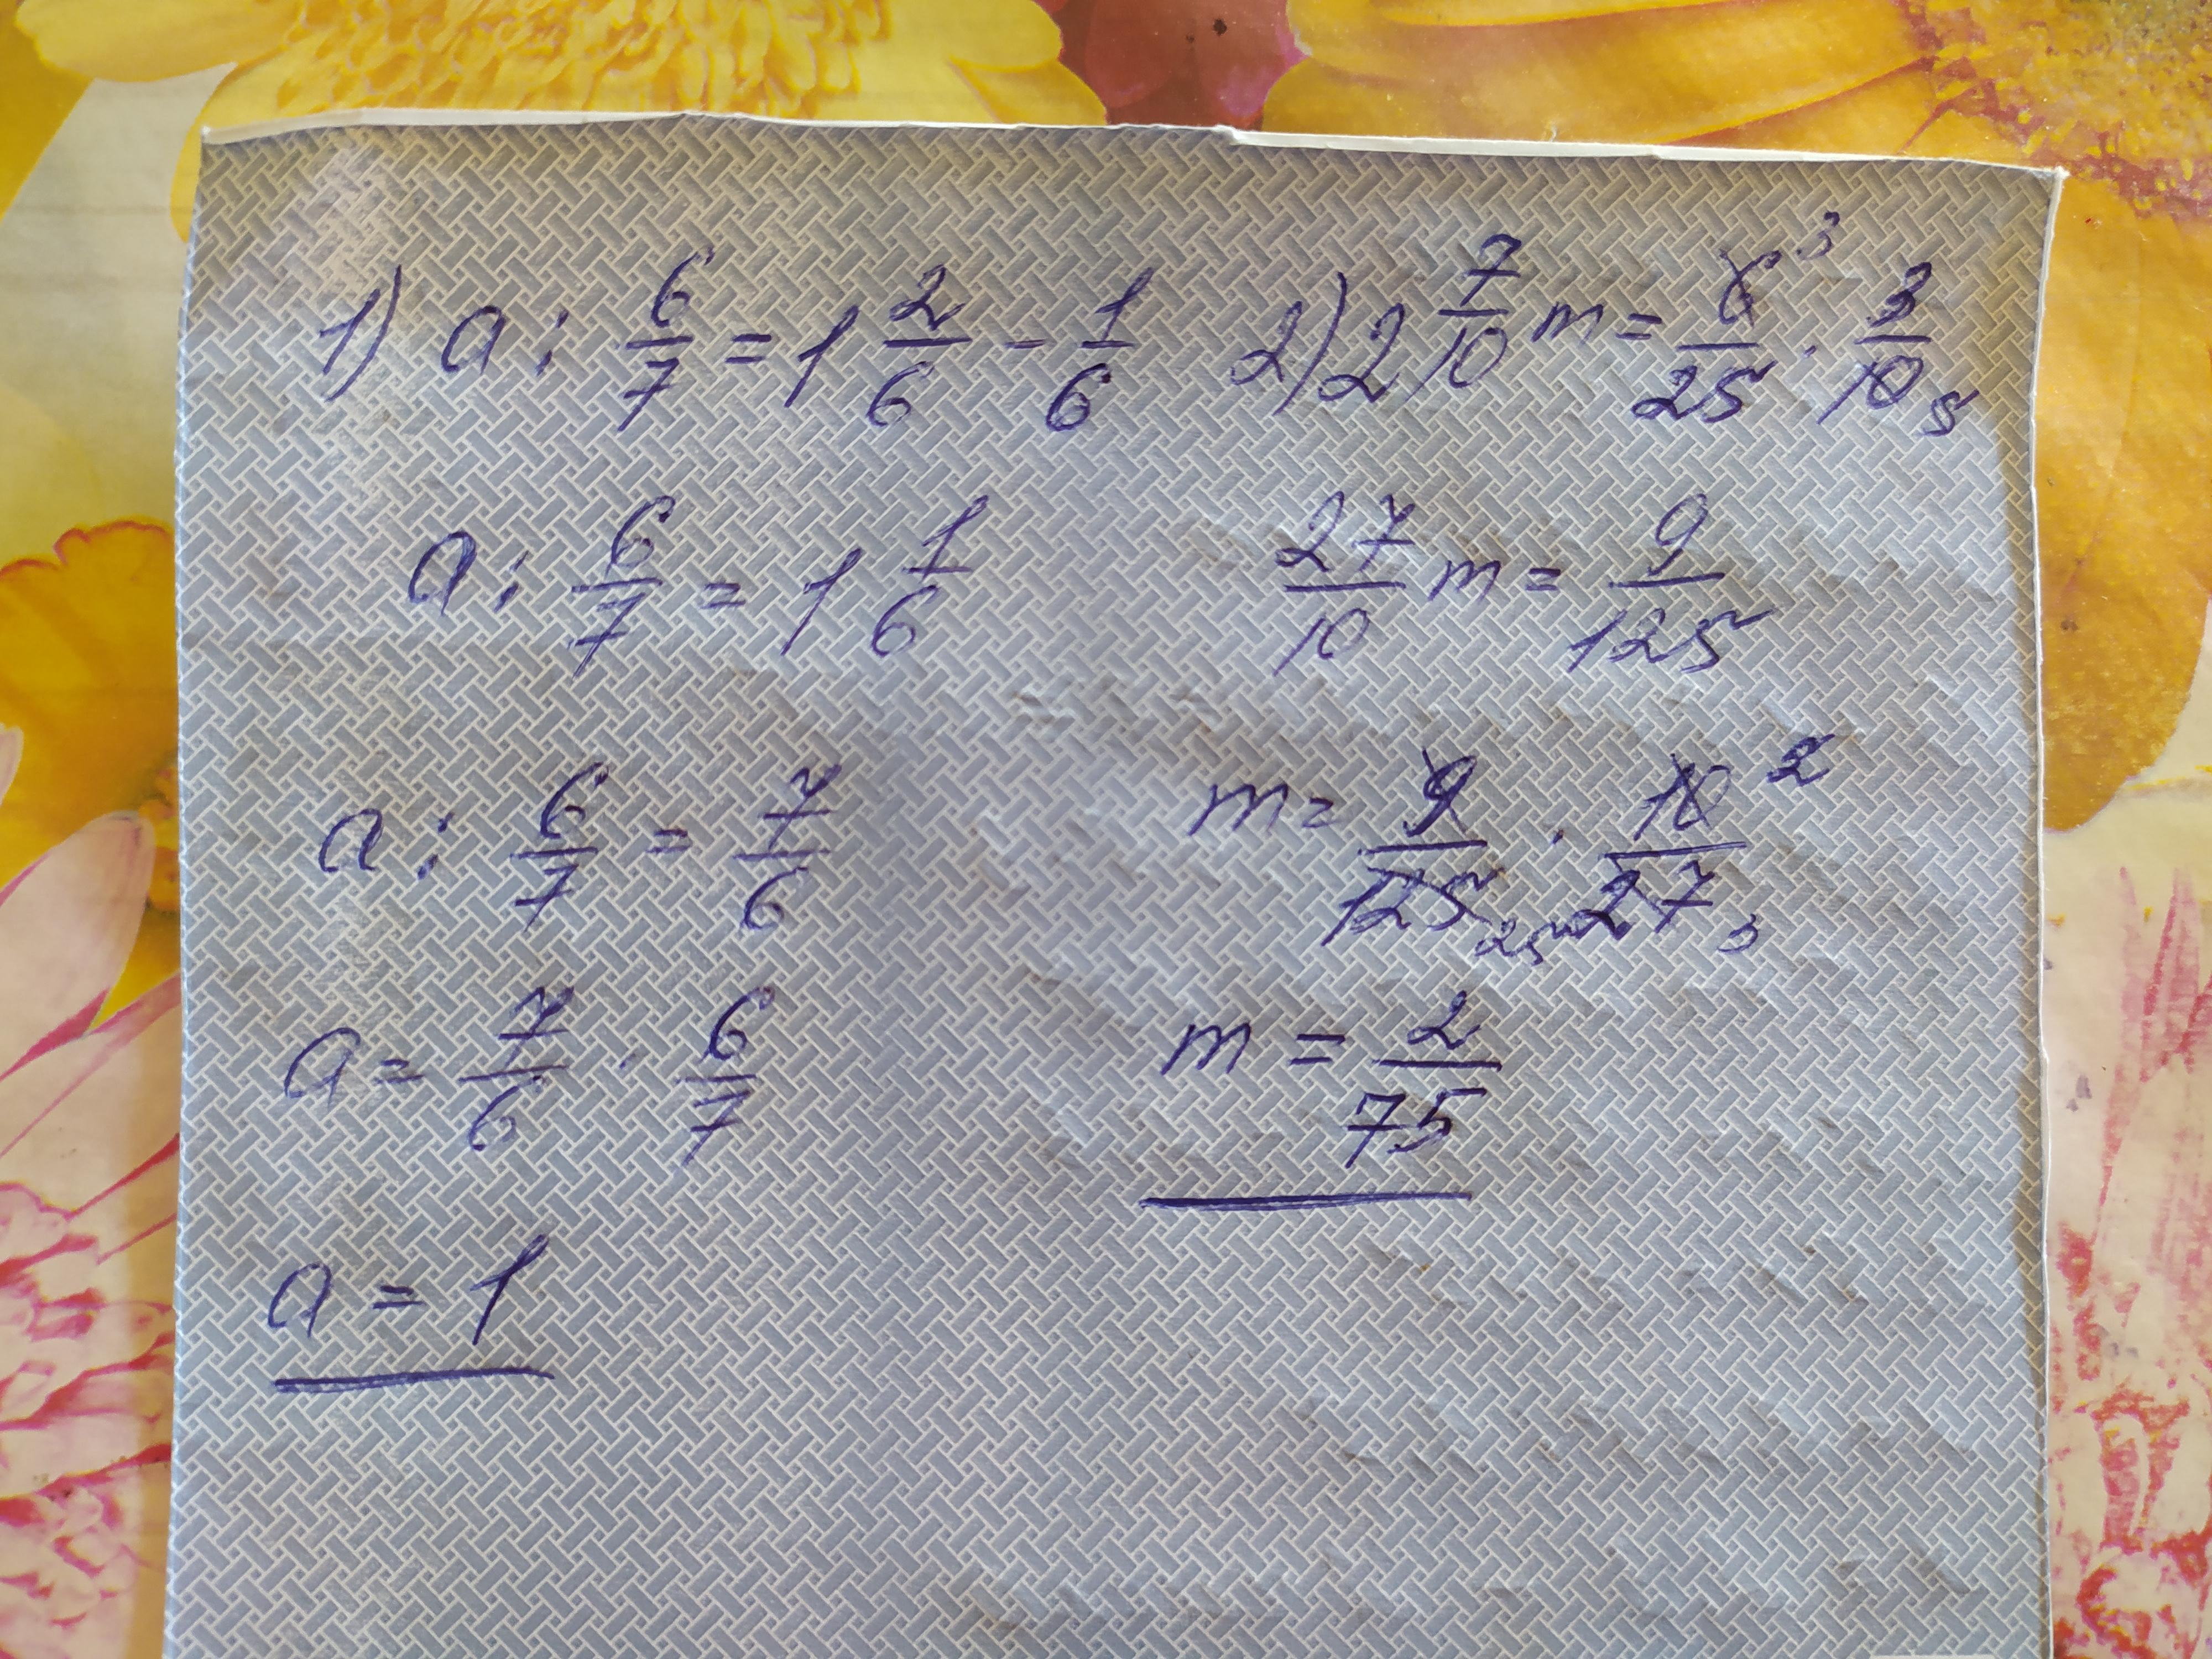 1) a : 6/7 = 1 2/6 - 1/6
a : 6/7 = 1 1/6
a : 6/7 = 7/6
a = 7/6 · 6/7
a = 1
2) 2 7/10 m = 6 3/25 · 3/10 5
27/10 m = 9/125
m = 9/125 25 · 10 2/27 3
m = 2/75